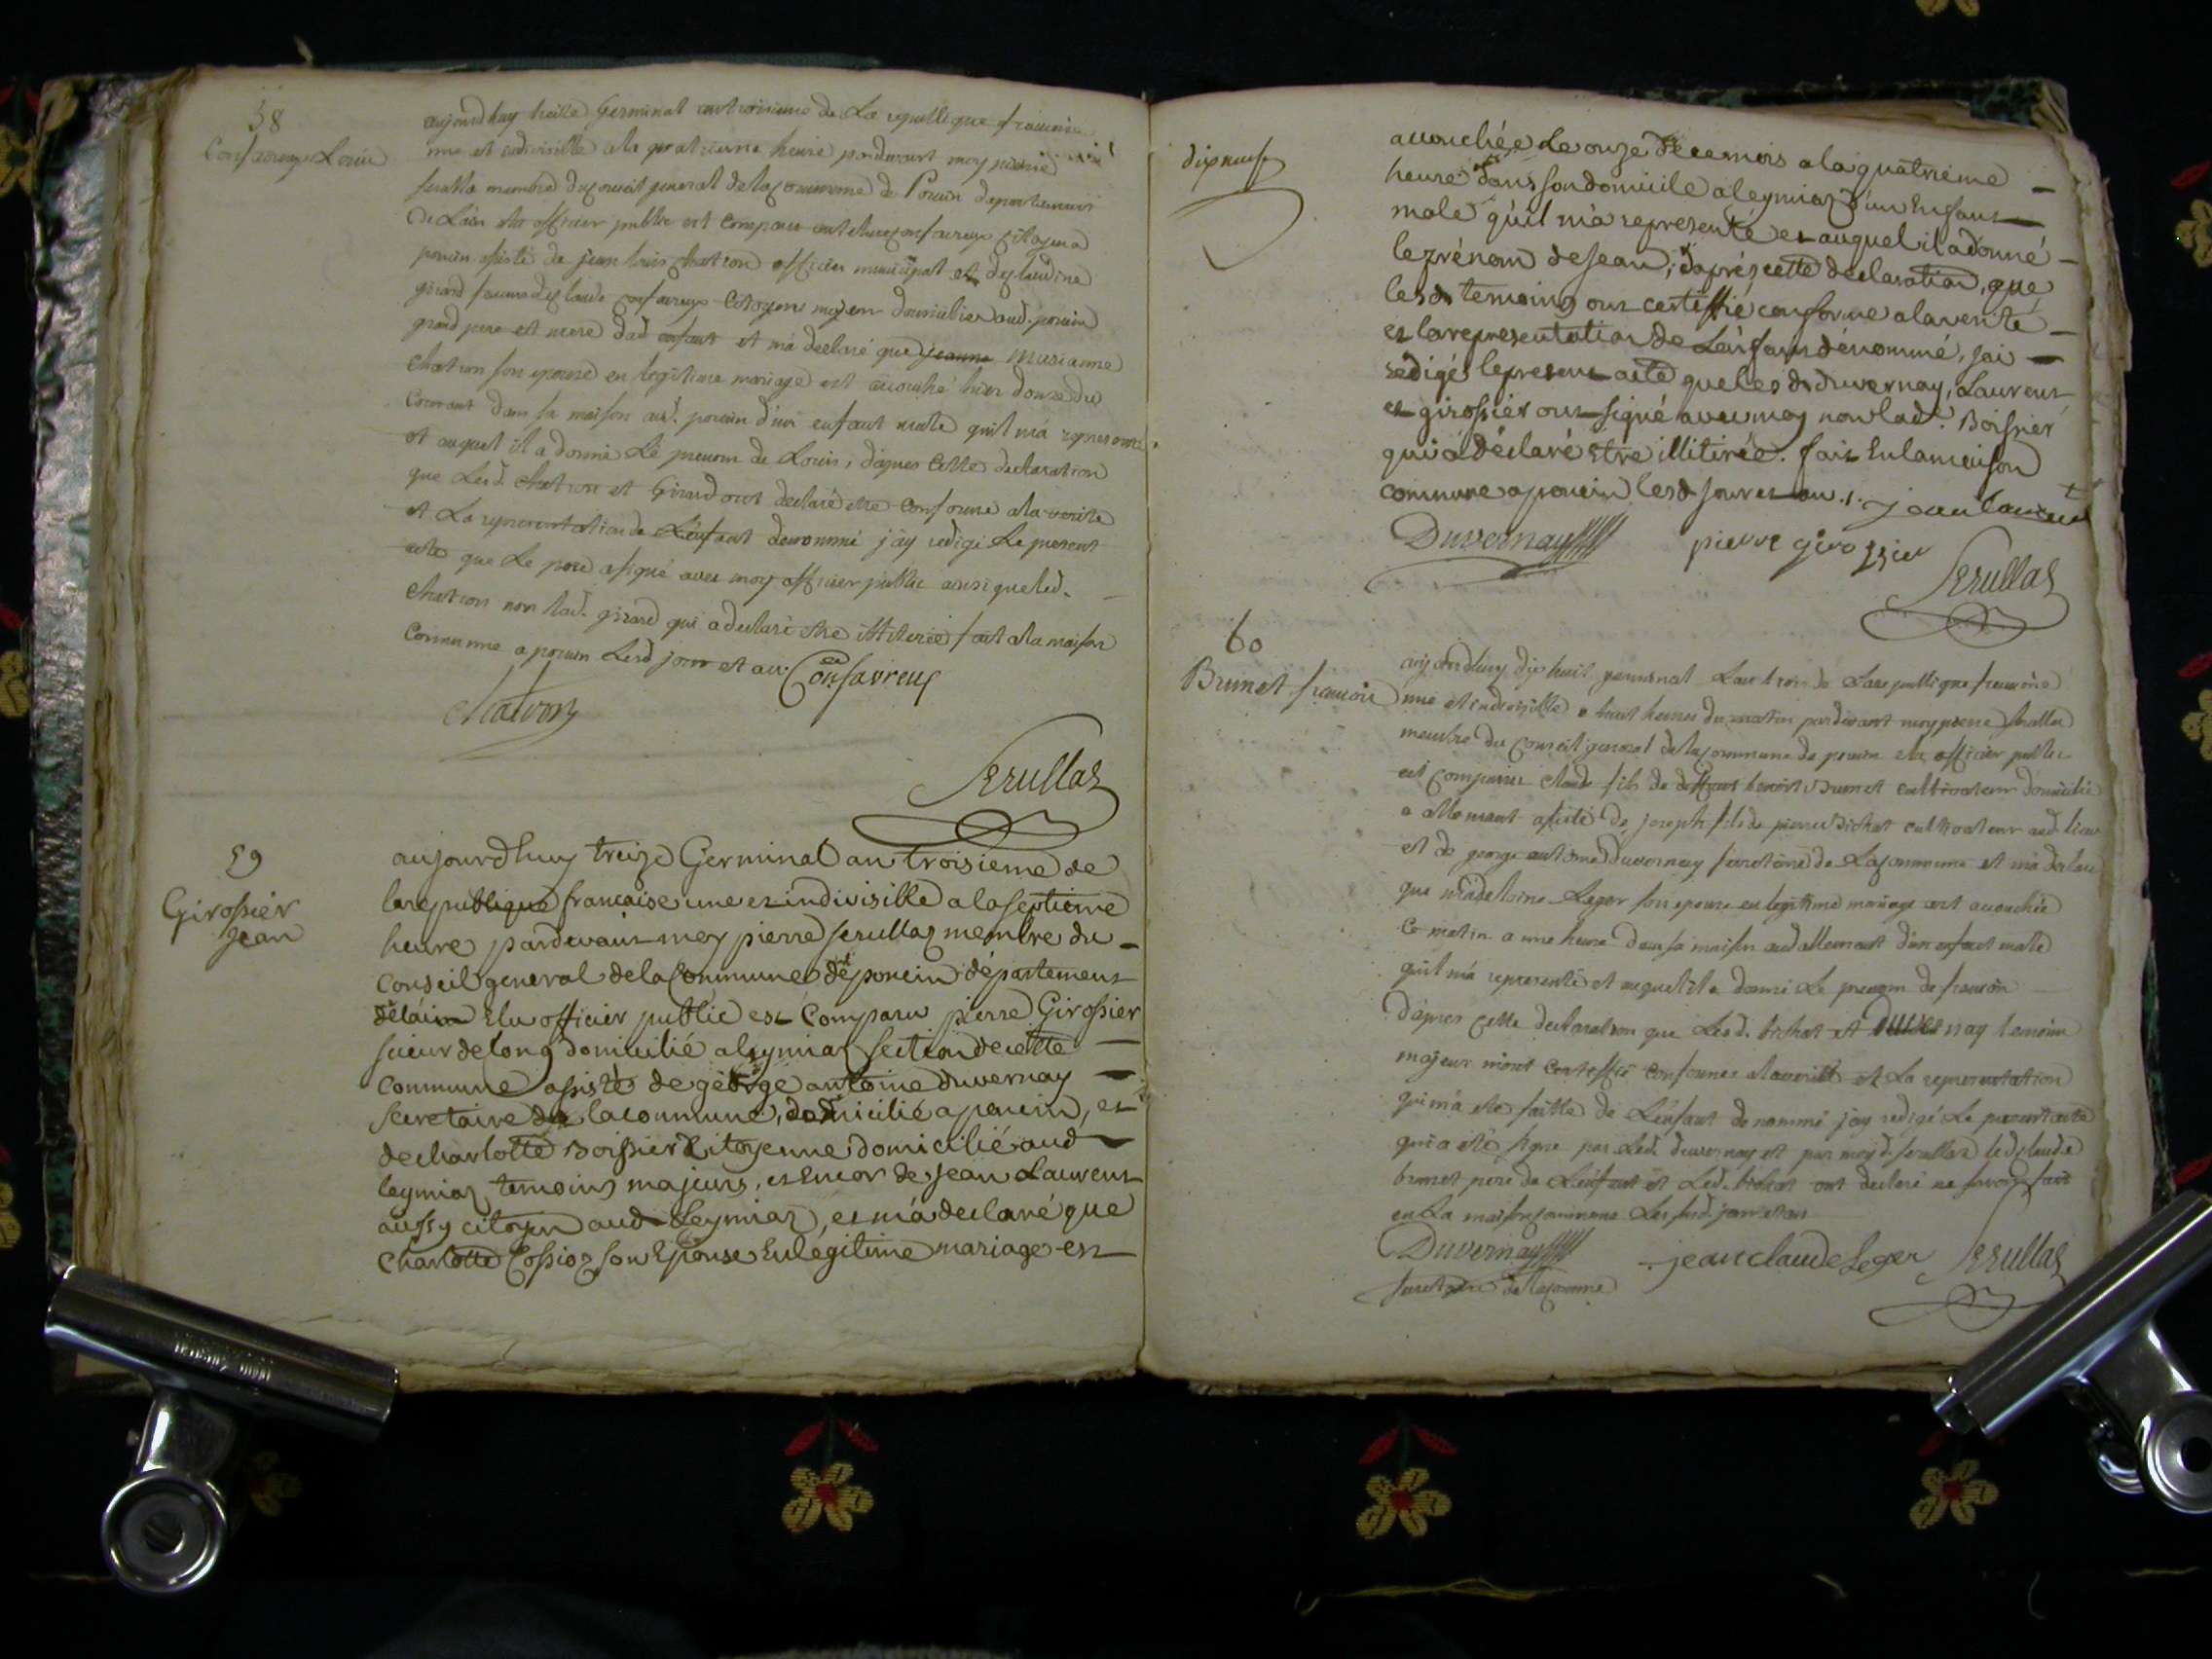 58
Confavreux Louis
aujourdhuy treize Germinal an troisieme de La republique francaise
une et indivisible a la quatrieme heure pardevant moy pierre
serullaz membre du conseil general de la commune de Poncin departement
De Lain elu officier public est comparu confavreux citoyen a
poncin assisté de jean louis chatron officier municipal et de claudine
girard femme de claude confavreux citoyens majeurs domiciliés aud. poncin
grand pere et mere dud enfant et m'a declaré que jeanne marianne
chatron son epouse en legitime mariage est accouché hier douze du
Courant dans sa maison aud. poncin d'un enfant male quil m'a represente
et auquel il a donné Le prenom de Louis, d'apres Cette declaration
que Lesd. chatron et Girard ont declaré etre conforme a la verité
et La representation de L'enfant denommé j'ay redigé Le present
acte que Le pere a signé avec moy officier public ainsi que led.
Chatron non lad. girard qui a declaré etre illiteree fait a la maison
Commune a poncin Lesd jour et an. Confavreux
Chatron
Serullaz
59
Girossier
Jean
aujourdhuy treize Germinal an troisieme de
la republique francaise une et indivisible a la septieme
heure pardevant moy pierre serullaz membre du
conseil general de la Commune de poncin département
de lain Elu officier public est Comparu pierre Girossier
scieur de long domicilié a leymiaz section de cette
commune assisté de géorge antoine duvernay
Secretaire de la commune, domicilié a poncin, et
de charlotte Boissier Citoyenne domiciliée aud
leymiaz temoins majeurs, et Encor de jean Laurent
aussy citoyen aud Leymiaz, et m'a declaré que
Charlotte Cossioz son Epouse En légitime mariage est
dix neuf
accouchée Le onze de ce mois a la quatrieme
heure dans son domicile a leymiaz d'un Enfant
male qu'il m'a representé et auquel il a donné
le prénom de Jean; d'aprés cette declaration, que
lesd. temoins ont certiffié conforme a la verité
et la representation de L'enfant dénommé, jai
rédigé le present acte que les d. duvernay, Laurent
et girossier ont signé avec moy non lad. Boissier
qui a déclaré Etre illitirée. fait En la maison
commune a poncin lesd jour et an. jean laurent
Duvernay pierre girossier
Serullaz
60
Brunet francois
aujourdhuy dix huit germinal Lan trois de La republique francaise
une et indivisible a huit heures du matin pardevant moy pierre serullaz
membre du Conseil general de la commune de poncin elu officier public
est comparu claude fils de deffunt benoit Brunet cultivateur domicilié
a allement assisté de joseph fils de pierre Bichat cultivateur aud. lieu
et de george antoine Duvernay secretaire de La commune et m'a declaré
que madelaine Leger son epouse en legitime mariage est accouchée
Ce matin a une heure dans sa maison aud allement d'un enfant male
quil m'a representé et auquel il a donné Le prenom de francois
D'apres Cette declaration que Lesd. bichat et Duvernay temoins
majeurs m'ont certiffié conforme a la verité et La representation
qui m'a ete faitte de L'enfant denommé j'ay redigé Le present acte
qui a été signé par Led. duvernay et par moy d. serullaz led claude
brunet pere de L'enfant et Led. bichat ont declaré ne savoir fait
en La maison commune Les sud. jour et an
Duvernay jean claude Leger Serullaz
secretaire de la commune